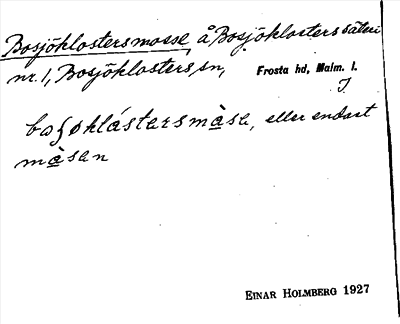 Bosjöklostersmosse å Bosjöklosters säteri
nr. 1, Bosjöklosters sn, Frosta hd, Malm. l.
boʃøklástarsmàsa, eller endast
màsan
EINAR HOLMBERG 1927